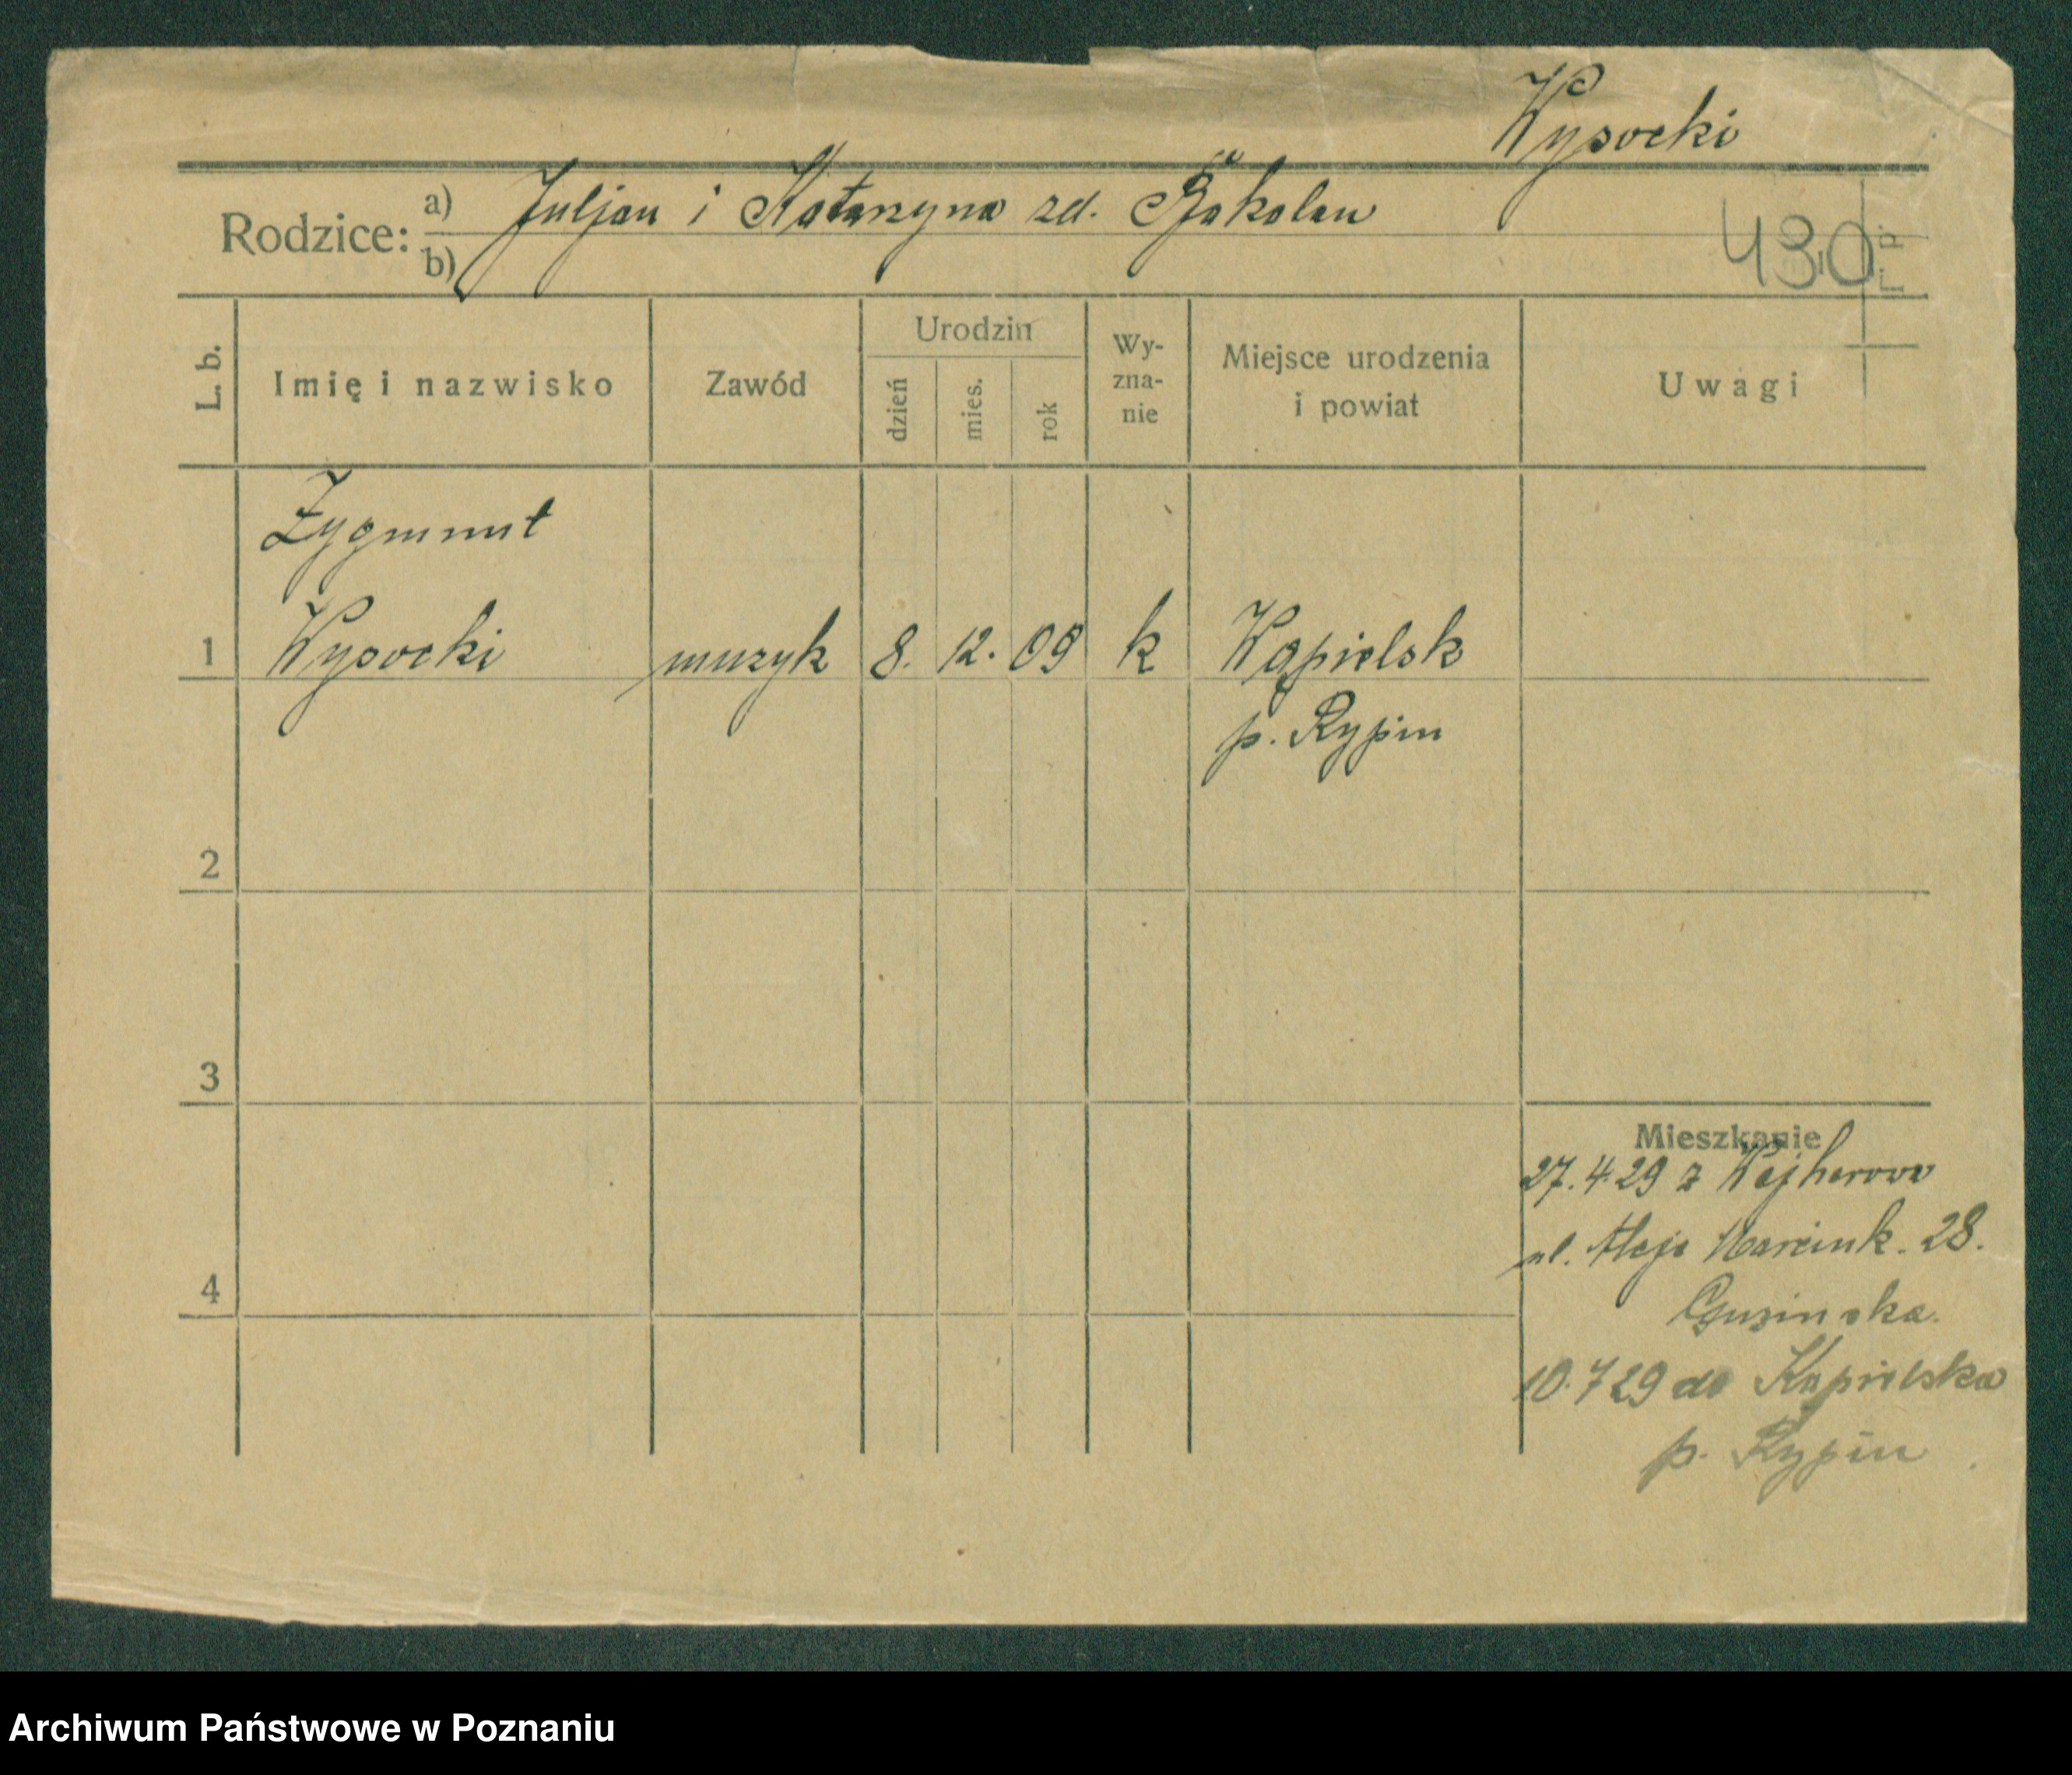 Wysocki
Rodzice: a) Juljan i Katarzyna zd.
b)
430
L. p.
L. b.
Imię i nazwisko
Zawód
Urodzin
dzień
mies.
rok
Wy-
zna-
nie
Miejsce urodzenia
i powiat
Uwagi
Zygmunt
1 Wysocki muzyk 8. 12. 09 k Wąpielsk
p. Rypin
2
3
4
Mieszkanie
27.4.29 z Wejherowa
ul. Aleje Marcink. 28.
10.7 29 do
p. Rypin
Archiwum Państwowe w Poznaniu